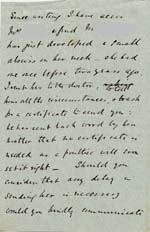 Since writing I have seen
Mrs        & find she
has just developed a small
abscess in her neck - she had
one once before two years ago,
I sent her to the doctor, to tell
him all the circumstances, & to ask
for a certificate to send you :
he has sent back word by her
mother that no certificate is
needed as a poultice will soon
set it right - Should you
consider that any delay in
sending her is necessary
would you kindly communicate